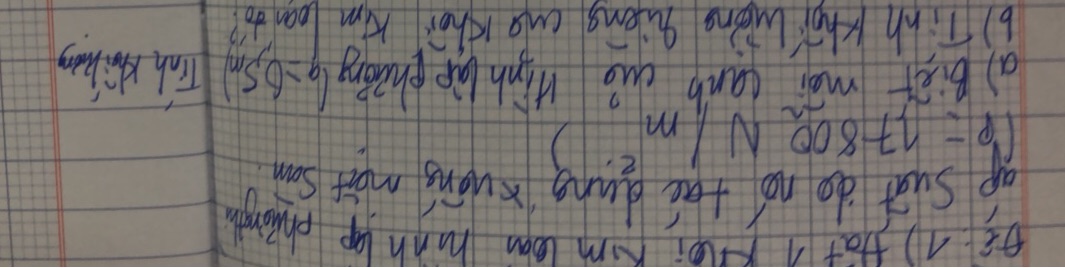 Đề: 1) Đặt 1 khối kim loại hình lập phương thì
áp suất do nó tác dụng xuống mặt sàn.
(p = 17800 N/m²)
a) Biết mỗi cạnh của hình lập phương (a = 0,5m) Tính khối lượng
b) Tính khối lượng riêng của khối kim loại đó?